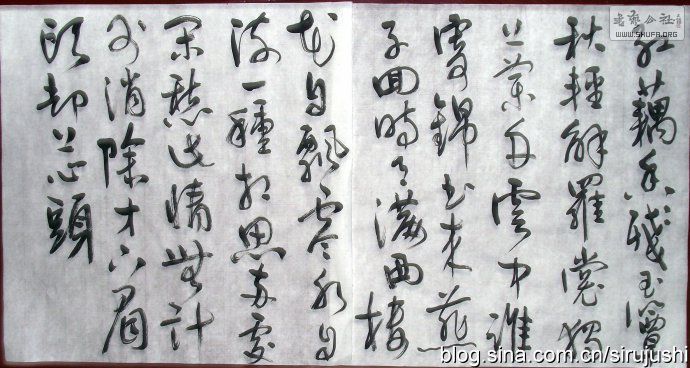 紅藕香殘玉簟
秋輕解羅裳獨
上蘭舟雲中誰
寄錦書來雁
字回時月滿西樓
花自飄零水自
流一種相思兩處
閑愁此情無計
可消除才下眉
頭却上心頭
书艺公社
WWW.SHUFA.ORG
blog.sina.com.cn/sirujushi